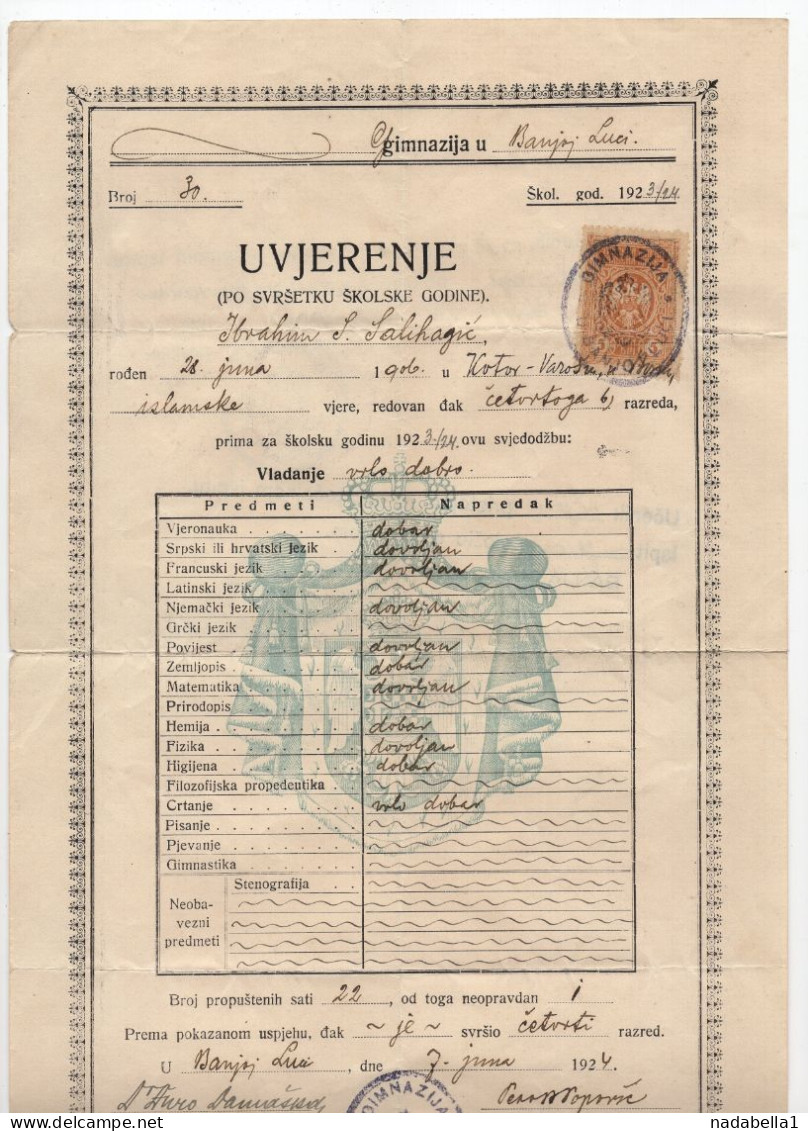 Gimnazija u Banjoj Luci.
Broj 30. Škol. god. 1923/24
UVJERENJE
(PO SVRŠETKU ŠKOLSKE GODINE).
GIMNAZIJA
Ibrahim S. Salihagić,
rođen 28. juna 1906. u Kotor-Varošu,
islamske vjere, redovan đak četvrtoga b) razreda,
prima za školsku godinu 1923./24. ovu svjedodžbu:
Vladanje vrlo dobro.
Predmeti Napredak
Vjeronauka dobar
Srpski ili hrvatski jezik dovoljan
Francuski jezik dovoljan
Latinski jezik
Njemački jezik dovoljan
Grčki jezik
Povijest dovoljan
Zemljopis dobar
Matematika dovoljan
Prirodopis
Hemija dobar
Fizika dovoljan
Higijena dobar
Filozofijska propedeutika
Crtanje vrlo dobar
Pisanje
Pjevanje
Gimnastika
Stenografija
Neoba-
vezni
predmeti
Broj propuštenih sati 22, od toga neopravdan 1
Prema pokazanom uspjehu, đak ~ je ~ svršio četvrti razred.
U Banjoj Luci, dne 7. juna 1924.
Dr Đuro GIMNAZIJA Pero Popović
nadabella1